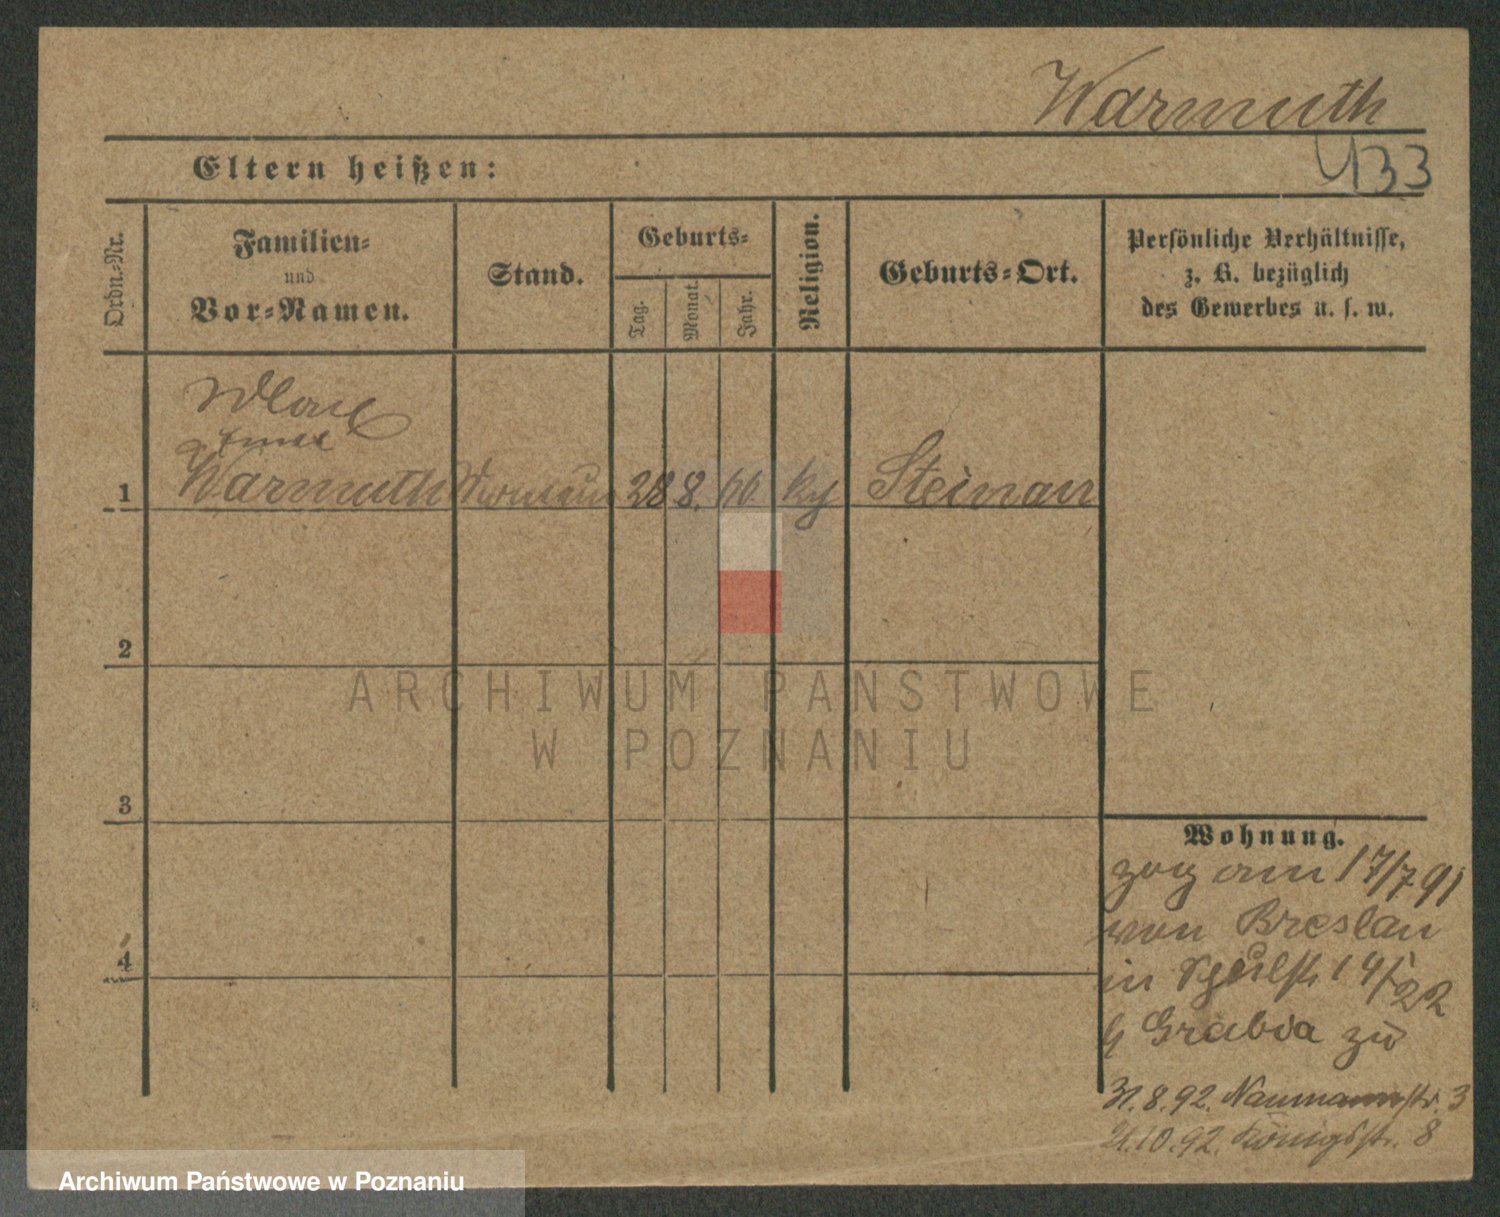 Warmuth
433
Eltern heißen:
Ordn.-Nr.
Familien-
und
Vor-Namen.
Stand.
Geburts-
Tag.
Monat.
Jahr.
Religion.
Geburts-Ort.
Persönliche Verhältnisse,
z. B. bezüglich
des Gewerbes u. s. w.
1
Warmuth 28 8. 66 Steinau
2
ARCHIWUM PAŃSTWOWE
W POZNANIU
3
4
Wohnung.
zog am 17/7 91
von Breslau
in 14/22
b Grabia zu
31.8.92. Naumannstr. 3
21.10.92. Königsstr. 8
Archiwum Państwowe w Poznaniu